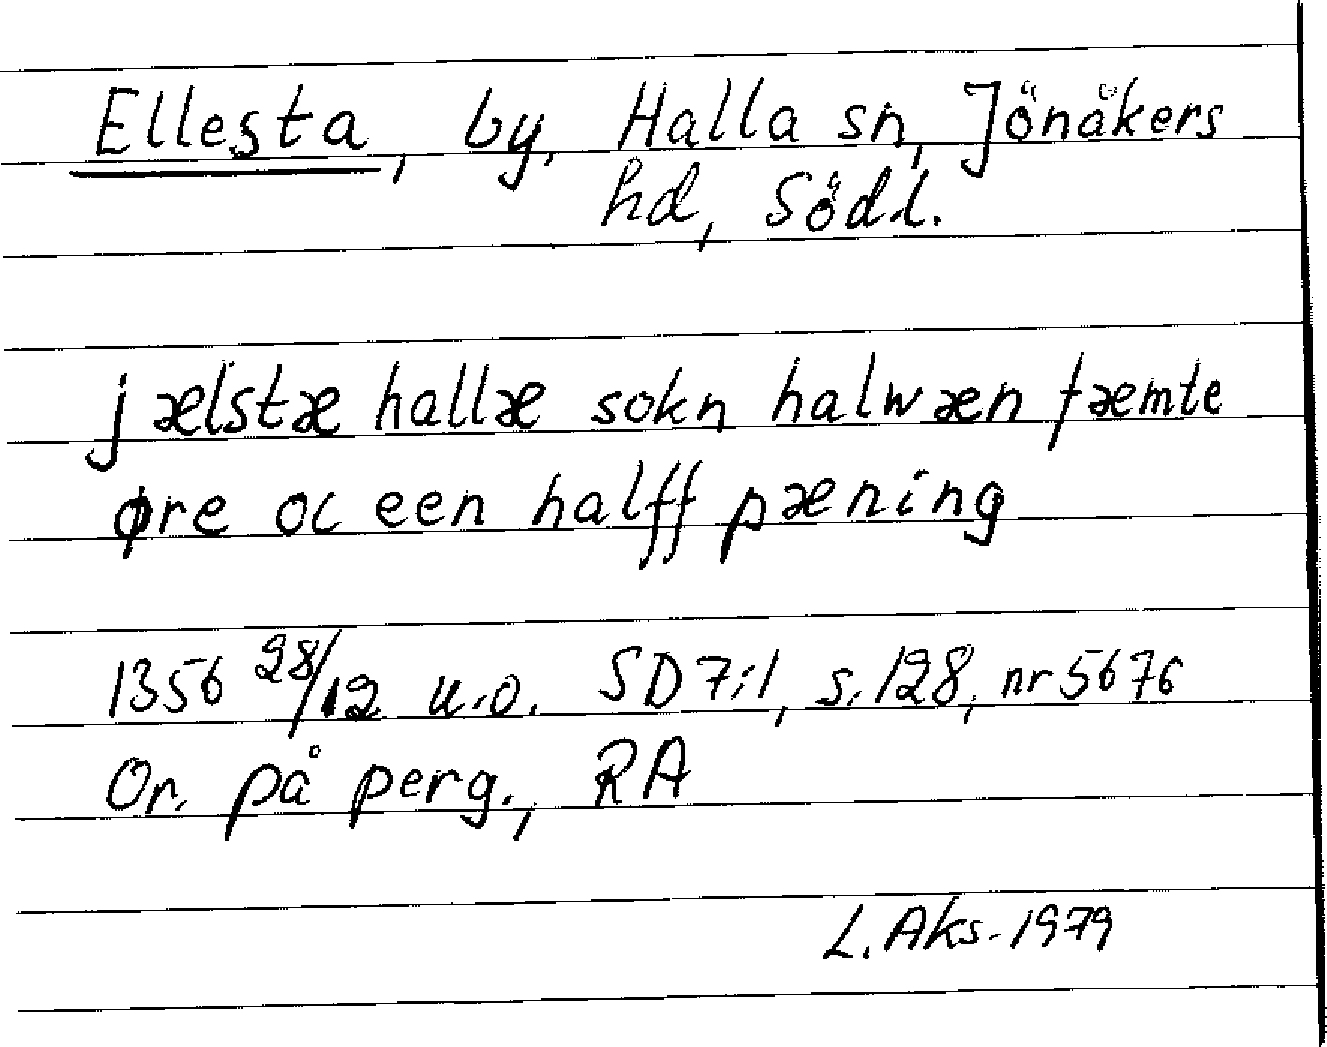 Ellesta, by, Halla sn, Jönåkers
hd, Södl.
j ælstæ hallæ sokn halwæn fæmte
øre oc een halff pæning
1356 28/12 u.o. SD 7:1, s. 128, nr 5676
Or. på perg., RA
L. Aks. 1979